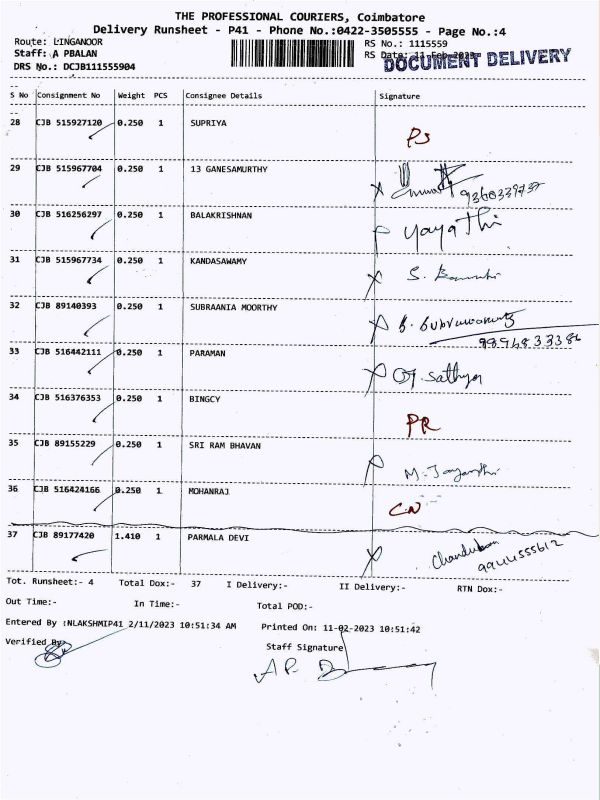 THE PROFESSIONAL COURIERS, Coimbatore
Delivery Runsheet - P41 - Phone No.:0422-3505555 - Page No.:4
Route: LINGANOOR RS No.: 1115559
Staff: A PBALAN RS Date: 11-Feb-2023
DRS No.: DCJB111555904 DOCUMENT DELIVERY
S No Consignment No Weight PCS Consignee Details Signature
28 CJB 515927120 0.250 1 SUPRIYA PS
29 CJB 515967704 0.250 1 13 GANESAMURTHY
30 CJB 516256297 0.250 1 BALAKRISHNAN yayathi
31 CJB 515967734 0.250 1 KANDASAWAMY S.
32 CJB 89140393 0.250 1 SUBRAANIA MOORTHY
33 CJB 516442111 0.250 1 PARAMAN sathya
34 CJB 516376353 0.250 1 BINGCY PR
35 CJB 89155229 0.250 1 SRI RAM BHAVAN M. Jayanthi
36 CJB 516424166 0.250 1 MOHANRAJ C.N
37 CJB 89177420 1.410 1 PARMALA DEVI 9944555612
Tot. Runsheet:- 4 Total Dox:- 37 I Delivery:- II Delivery:- RTN Dox:-
Out Time:- In Time:- Total POD:-
Entered By :NLAKSHMIP41 2/11/2023 10:51:34 AM Printed On: 11-02-2023 10:51:42
Verified By Staff Signature